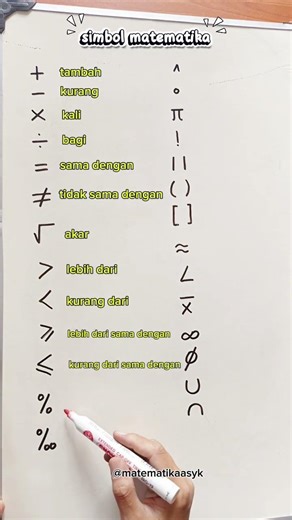 simbol matematika
+ tambah
− kurang
× kali
÷ bagi
= sama dengan
≠ tidak sama dengan
√ akar
> lebih dari
< kurang dari
⩾ lebih dari sama dengan
⩽ kurang dari sama dengan
%
‰
^
°
π
!
| |
( )
[ ]
≈
∠
x̅
∞
∅
∪
∩
@matematikaasyk